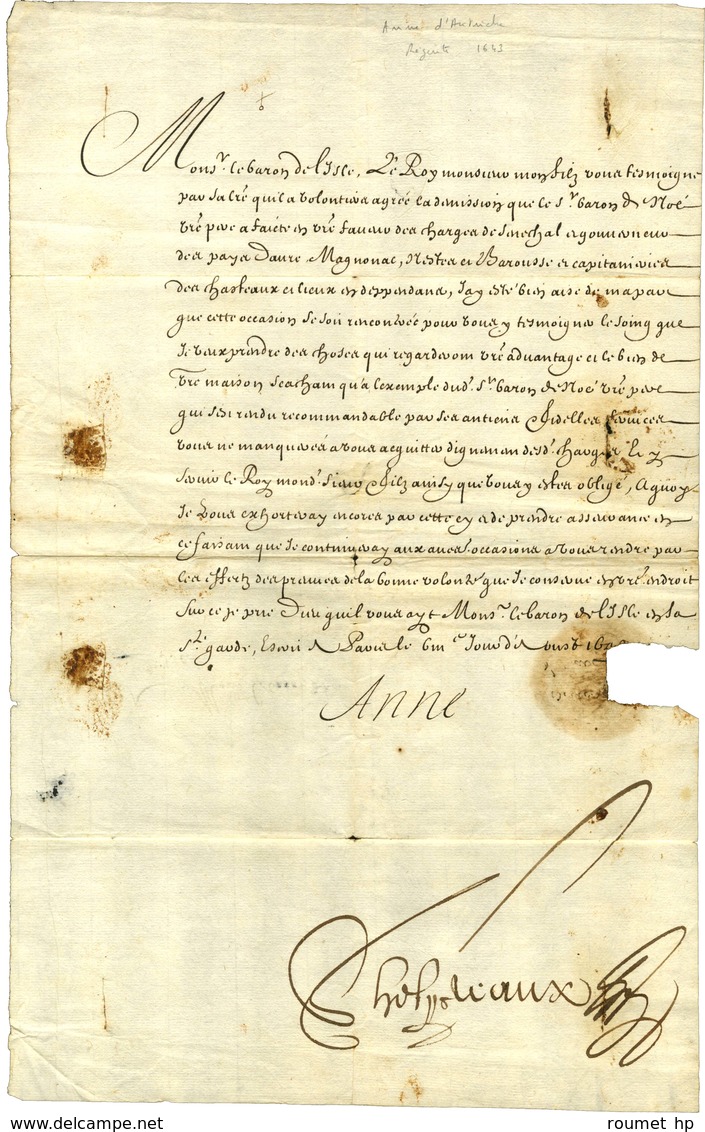 Anne d'Autriche
Régente 1643
Monsr. le baron de l'Isle, Le Roy monsieur mon filz vous tesmoigne
par sa lrē qu'il a volontiers agréé la demission que le Sr. baron de Noé
vrē pere a faicte en vrē faveur des charges de senechal et gouverneur
des pays Daure Magnonac, Nestes et Barousse et capitaineries
des chasteaux et lieux en deppendans, J'ay esté bien aise de ma part
que cette occasion se soit rencontrée pour vous y tesmoigner le soing que
Je veux prendre des choses qui regarderont vrē advantage et le bien de
vrē maison Sachant qu'a l'exemple dud. Sr. baron de Noé vrē pere
qui s'est rendu recommandable par ses antiens & fidelles services
vous ne manquerés a vous acquitter dignement desd. charges Et y
servir le Roy mond. sieur & filz ainsy que vous y estes obligé, A quoy
Je vous exhorteray encores par cette cy et de prendre asseurance en
ce faisant que Je continueray aux autres occasions a vous rendre par
les effectz des preuves de la bonne volonté que Je conserve en vrē endroit
Sur ce je prie Dieu qu'il vous ayt Monsr. le baron de l'Isle en sa
Ste. garde, Escrit a Paris le 6me Jour d'Aoust 16
Anne
Phelypeaux
www.delcampe.net
roumet hp